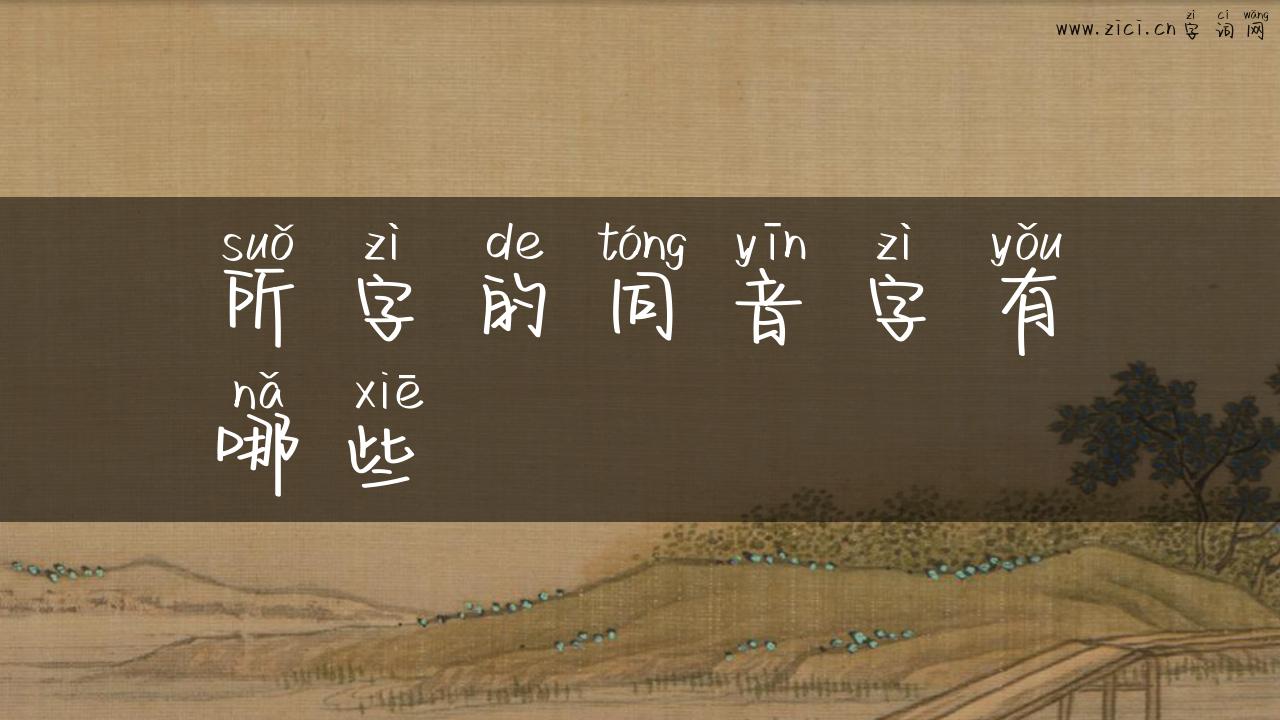 zì cí wǎng
www.zici.cn字词网
suǒ zì de tóng yīn zì yǒu
所字的同音字有
nǎ xiē
哪些